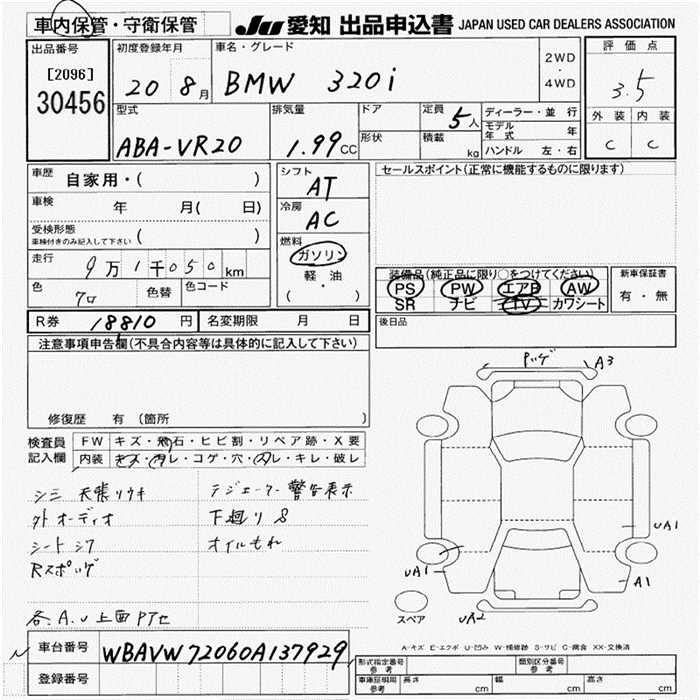 車内保管・守衛保管
JU 愛知 出品申込書 JAPAN USED CAR DEALERS ASSOCIATION
出品番号
[2096]
30456
初度登録年月
20 8月
車名・グレード
BMW 320i
2WD
・
4WD
評価点
3.5
外装 内装
C C
型式
ABA-VR20
排気量
1.99CC
ドア
形状
定員 5人
積載 kg
ディーラー・並行
モデル年式 年
ハンドル 左・右
車歴 自家用・( )
車検 年 月( 日)
受検形態
車検付きのみ記入して下さい ( )
走行 9万1千050km
色 クロ 色替 色コード
シフト
AT
冷房
AC
燃料
ガソリン
軽・油
( ・ )
セールスポイント(正常に機能するものに限ります)
装備品(純正品に限り○をつけてください)
PS PW エアB AW
SR ナビ TV カワシート
新車保証書
有・無
R券 18810円 名変期限 月 日
後日品
注意事項申告欄(不具合内容等は具体的に記入して下さい)
修復歴 有(箇所 )
検査員
記入欄
FW キズ・飛石・ヒビ割・リペア跡・X要
内装 キズ・汚レ・コゲ・穴・凹レ・キレ・破レ
シミ 天張リウキ
外オーディオ
シートシワ
Rスポ
各A.U上面
警告表示
下廻りS
オイルもれ
A3
UA1
UA1
A1
UR2
スペア
A-キズ E-エクボ U-凹み W-補修跡 S-サビ C-腐食 XX-交換済
車台番号 WBAVW72060A137929
登録番号
形式指定番号
参考
類別区分番号
参考
車庫証明用
参考
長さ cm 幅 cm 高さ cm